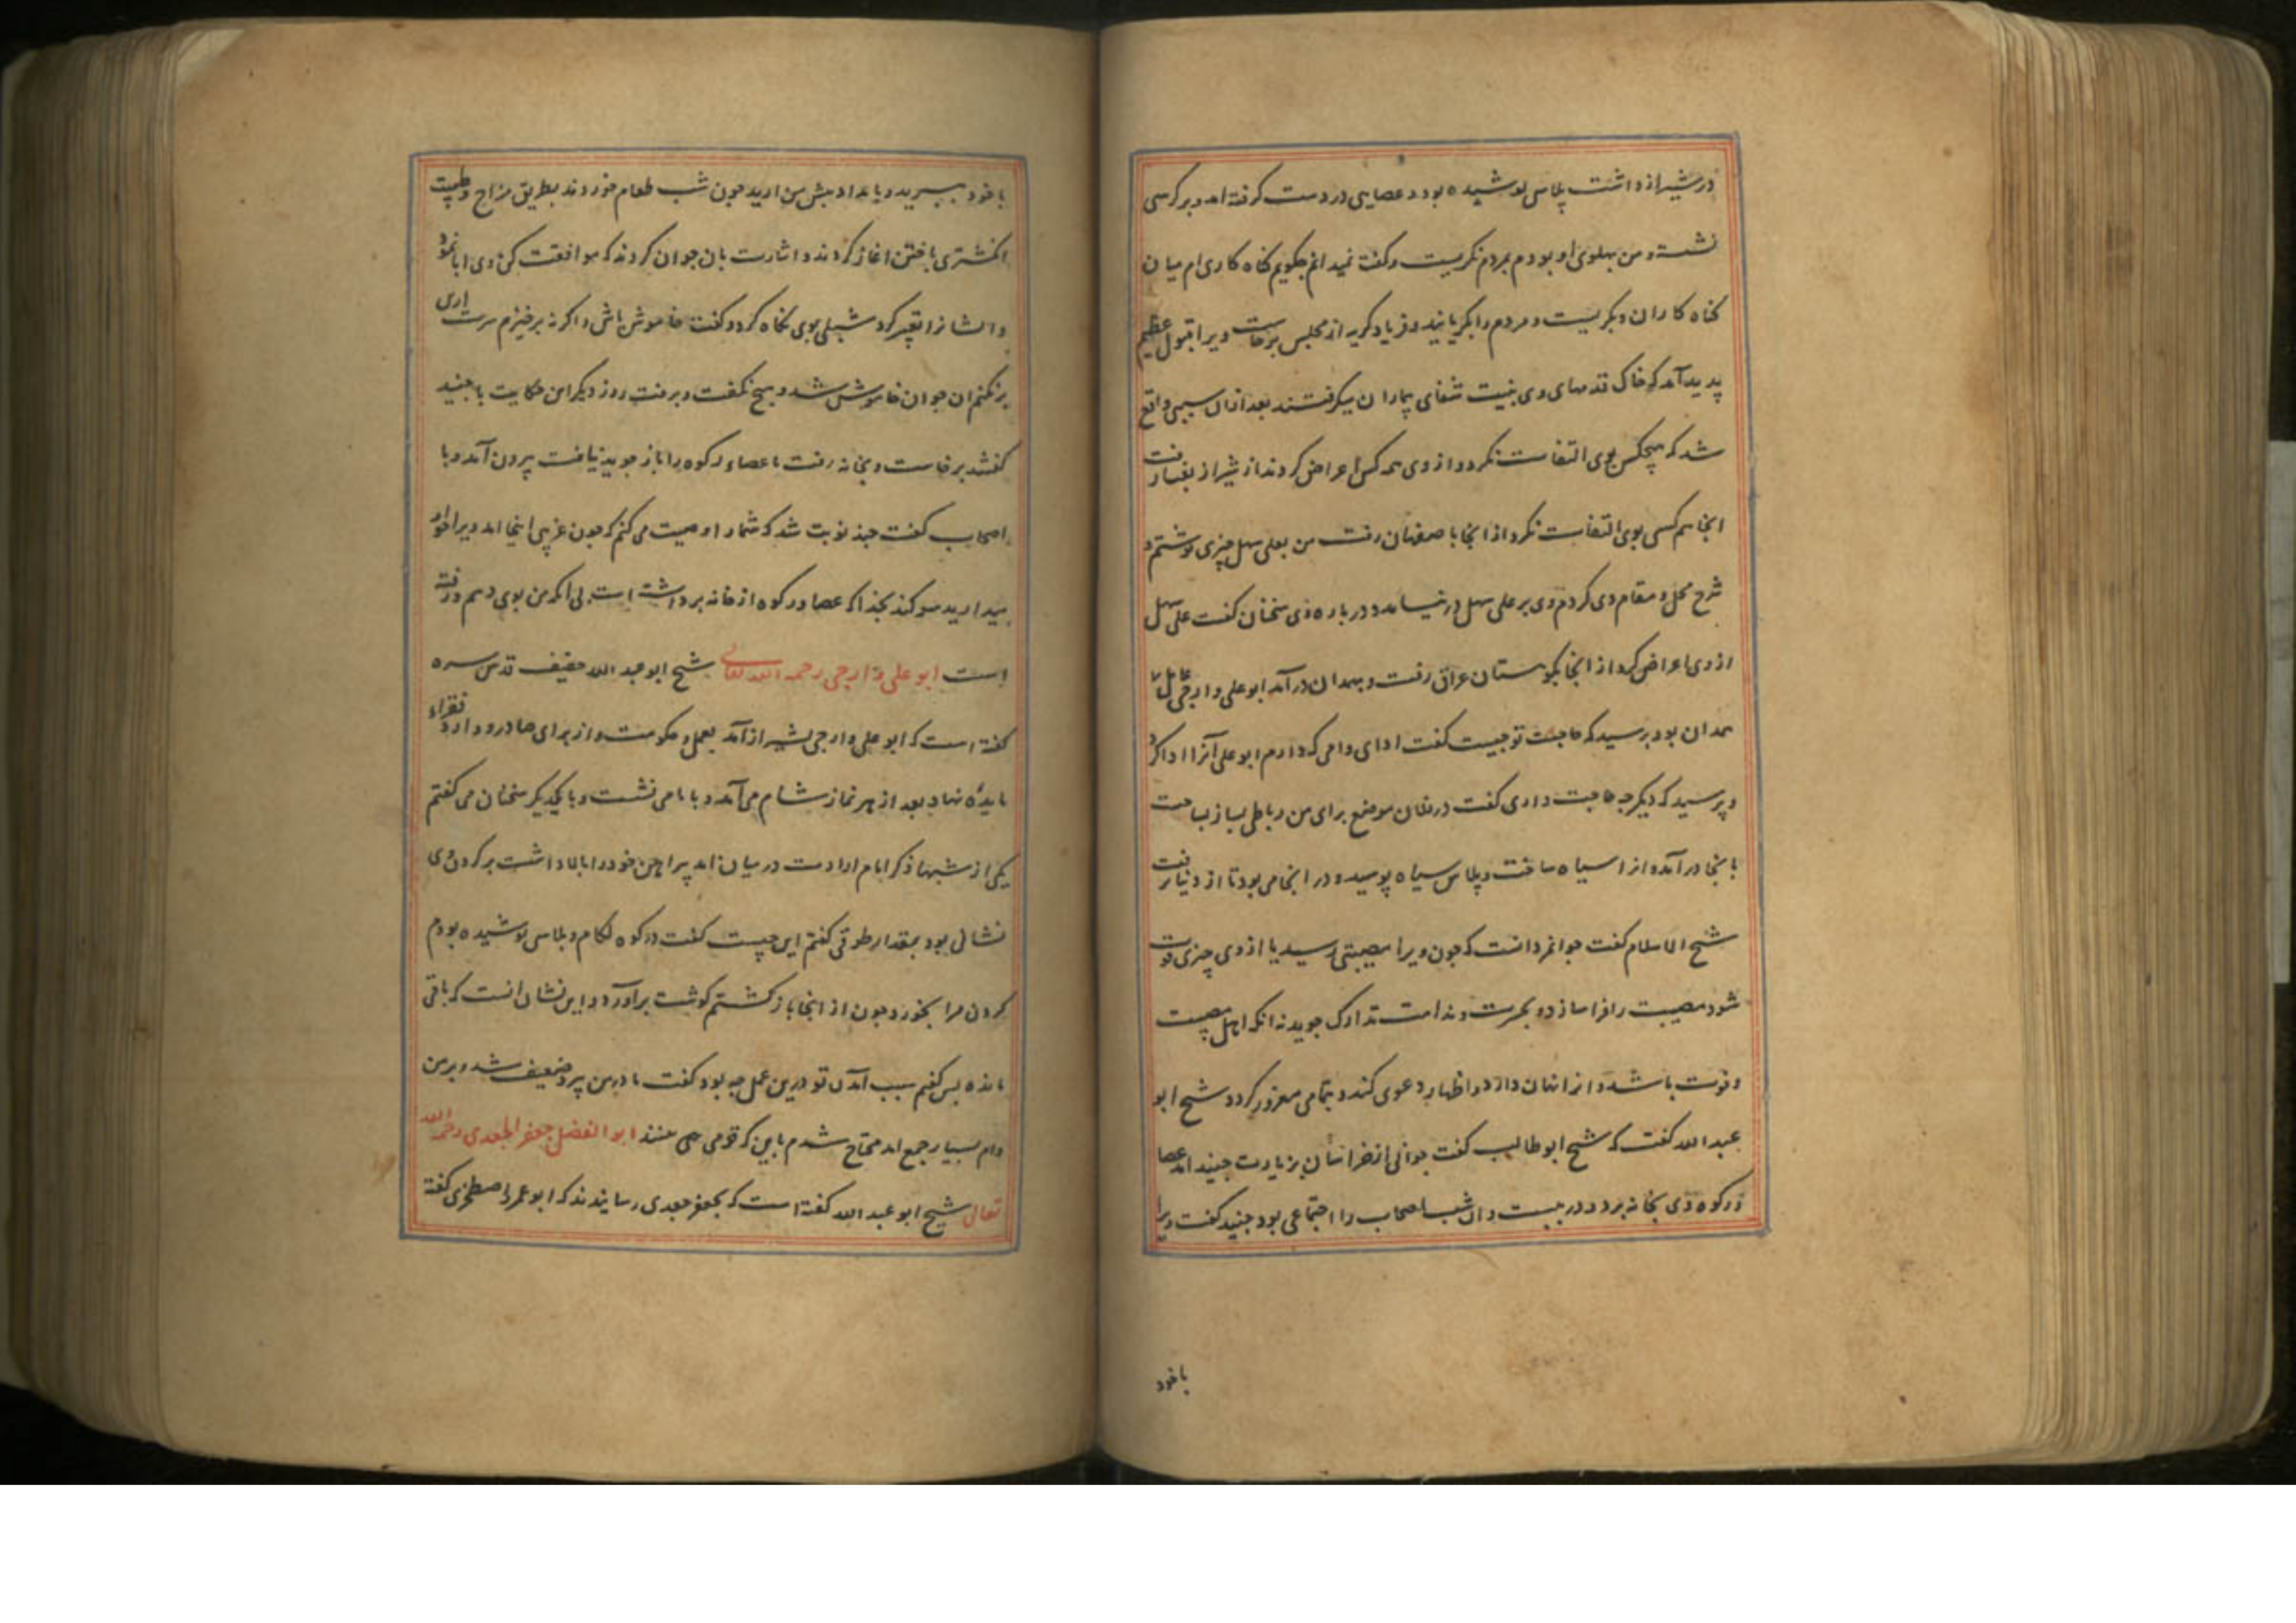 در شیراز داشت پلاسی پوشیده بود و عصایی در دست گرفته امد و بر کرسی
نشست و من بپهلوی او بودم بمردم نکریست و کفت نمیدانم چکویم کناه کاری ام میان
کناه کاران و بکریست و مردم را بکریانید و فریاد کریه از مجلس برخاست ویرا قبول عظیم
پدید آمد که خاک قدمهای وی بنیت شفای بیماران میکرفتند بعد ازان سببی واقع
شد که هیچکس بوی التفات نکرد و از وی همه کس اعراض کردند از شیراز بفسا رفت
انجا هم کسی بوی التفات نکرد از انجا باصفهان رفت من بعلی سهل چیزی نوشتم و
شرح محل و مقام وی کردم وی بر علی سهل در نیامد و درباره وی سخنان کفت علی سهل
از وی اعراض کرد از انجا بکوهستان عراق رفت و بهمدان درآمد ابوعلی وارجی عامل
همدان بود پرسید که حاجت تو چیست کفت ادای وامی که دارم ابوعلی آنرا ادا کرد
و پرسید که دیکر چه حاجت داری کفت در فلان موضع برای من رباطی بساز بساخت
بانجا درآمد و انرا سیاه ساخت و پلاس سیاه پوسید و در انجا می بود تا از دنیا برفت
شیخ الاسلام کفت جوانمرد انست که چون ویرا مصیبتی رسید یا از وی چیزی فوت
شود مصیبت را فرا سازد و بحسرت و ندامت تدارک جوید نه انکه اهل مصیبت
و فوت باشد و انرا نهان دارد و اظهار دعوی کند و بتمامی مغرور کردد شیخ ابو
عبد الله کفت که شیخ ابوطالب کفت جوانی از خراسان بزیارت جنید امد عصا
و رکوه وی بخانه برد و در ببست و ان شب اصحاب را اجتماعی بود جنید کفت ویرا
باخود
باخود ببرید و بامداد پیش من ارید چون شب طعام خوردند بطریق مزاح و طیبت
انکشتری باختن اغاز کردند و اشارت بان جوان کردند که موافقت کن وی ابا نمود
و ایشانرا تعییر کرد شبلی بوی نکاه کرد و کفت خاموش باش و اکر نه برخیزم سرت از تن
برکنم ان جوان خاموش شد و هیچ نکفت و برفت روز دیکر این حکایت با جنید
کفتند برخاست و بخانه رفت تا عصا و رکوه را باز جوید نیافت بیرون آمد و با
اصحاب کفت چند نوبت شد که شما را وصیت می کنم که چون غریبی اینجا امد ویرا خوار
میدارید سوکند بخدا که عصا و رکوه از خانه برداشته است بی انکه من بوی دهم و رفته
است ابو علی وارجی رحمه الله تعالی شیخ ابو عبد الله خفیف قدس سره
کفته است که ابو علی وارجی بشیراز آمد بعمل و حکومت و از برای صادر و وارد فقراء
مایده نهاد بعد از هر نماز شام می آمد و با ما می نشست و با یکدیکر سخنان می کفتم
یکی از شبها ذکر ایام ارادت در میان امد پیراهن خود را بالا داشت بر کردن وی
نشانی بود بمقدار طوقی کفتم این چیست کفت در کوه لکام پلاسی پوشیده بودم
کردن مرا بخورد چون از انجا باز کشتم کوشت برآورد و این نشان انست که باقی
مانده پس کفتم سبب آمدن تو درین عمل چه بود کفت مادر من پیر و ضعیف شد و بر من
وام بسیار جمع امد محتاج شدم باین که قومی بینند ابو الفضل جعفر الجعدی رحمه الله
تعالی شیخ ابو عبد الله کفته است که بجعفر جعدی رسانیدند که ابو عمر و اصطخری کفته